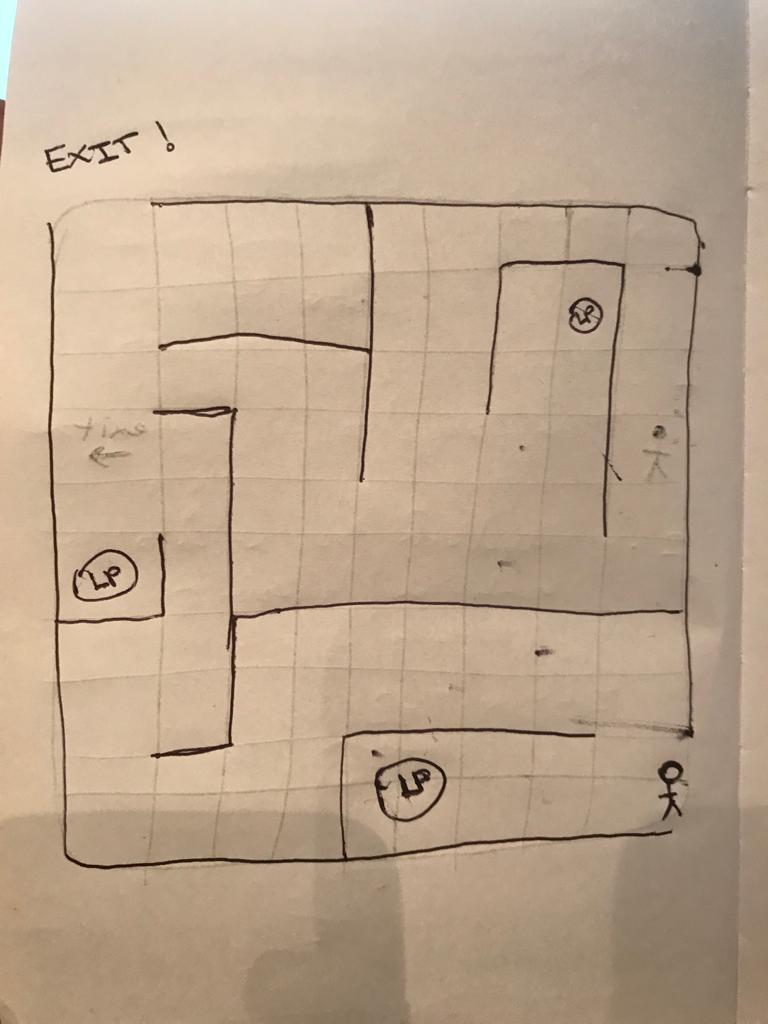 EXIT!
LP
time
LP
LP